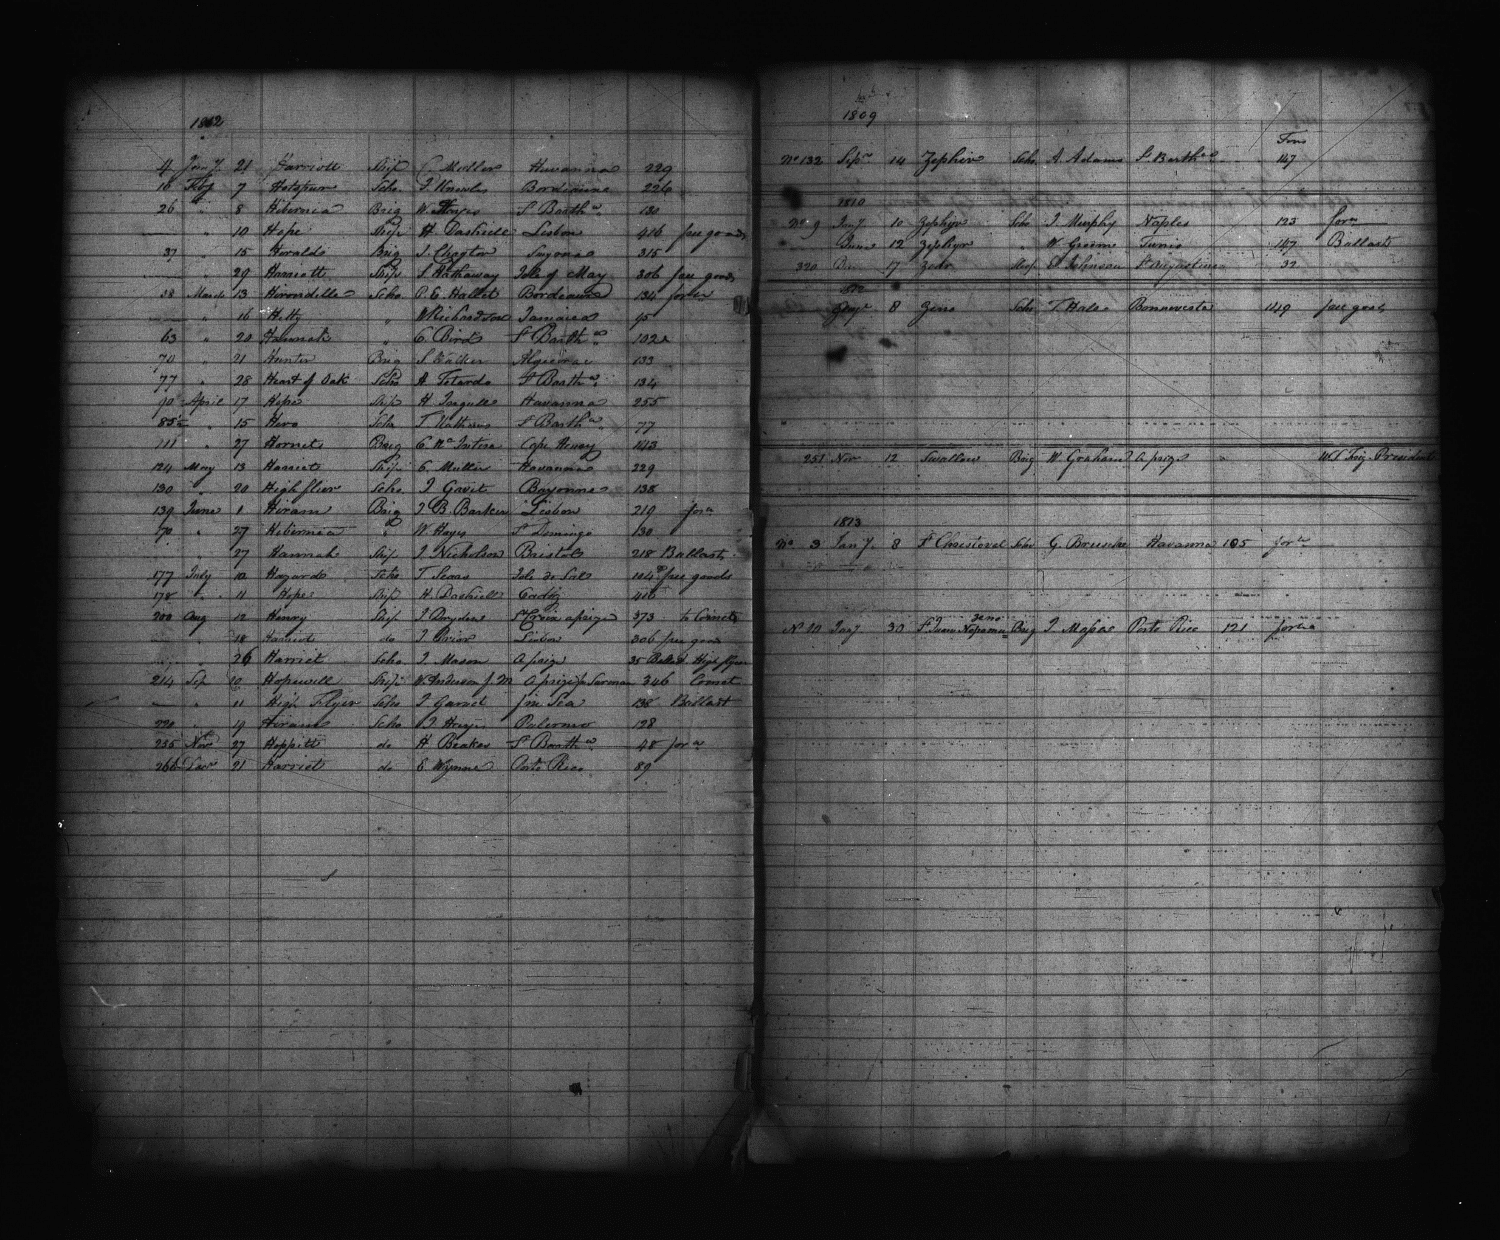 1812
4 Jany 21 Harriott Ship C Muller Havanna 229
16 Feby 7 Hotspur Scho J Knowles Bordeaux 226
26 " 8 Hibernia Brig W Hayes St Bartha 130
" 10 Hope Ship H Dashiell Lisbon 416 free goods
37 " 15 Heralds Brig J. Chayter Bayonne 315
" 29 Harriott Ship S Hathaway Isle of May 306 free goods
58 March 13 Hirondelle Scho P. E. Hallet Bordeaux 134 forn
" 16 Hetty " W Richardson Jamaica 95
63 " 20 Hannah " C Birds St Bartha 102
70 " 21 Hunter Brig S. Walker 133
77 " 28 Heart of Oak Scho A Tetardo St Bartha 134
90 April 17 Hope Ship H Havanna 255
85½ " 15 Hero Scho T Mathews St Bartha 77
111 " 27 Hornet Brig Cape Henry 143
124 May 13 Harriett Ship C. Muller Havanna 229
130 " 20 High flier Scho J Gavit Bayonne 138
139 June 1 Hiram Brig J B. Barker Lisbon 210 forn
70 " 27 Hibernia " W Hayes St Domingo 130
" 27 Hannah Ship J. Nicholson Bristol 218 Ballast
177 July 10 Hazard Scho T Sears Isle de Sal 104 free goods
178 " 11 Hope Ship H. Dashiell Cadiz 416
200 Aug 12 Henry Ship J Dryden St Croix a prize 373 to Comet
" 18 Harriot do J Lisbon 306 free goods
" 26 Harriet Scho J. Mason A prize 35 Ballast High flyer
214 Sep 10 Hopewell Ship W. Anderson A prize fm Surinam 346 Comet
" 11 High Flyer Scho J Gavet from Sea 138 Ballast
220 " 19 Hiram Scho J Palermo 128
235 Nov 27 Heppitt do H Beakes St Bartha 48 forn
266 Decr 21 Harriet do E Wynne Porto Rico 89
1809
Tons
No 132 Sepr 14 Zephir Scho A. Adams St Barths 147
1810
No 9 Jany 10 Zephyr Scho J Murphy Naples 123 forn
June 12 Zephyr " W Greene Tunis 147 Ballast
320 Dec 17 Zear Slop J Johnson St Augustine 32
1812
8 Zeno Schr T Hale Bonnevista 149 free goods
251 Nov 12 Swallow Brig W. Graham A prize U.S. Frig President
1813
No 3 Jany 8 St Christoval Schr G. Havanna 105 forn
zeno
No 10 Jany 30 St Juan Nepomu Brig J. Porto Rico 121 forn